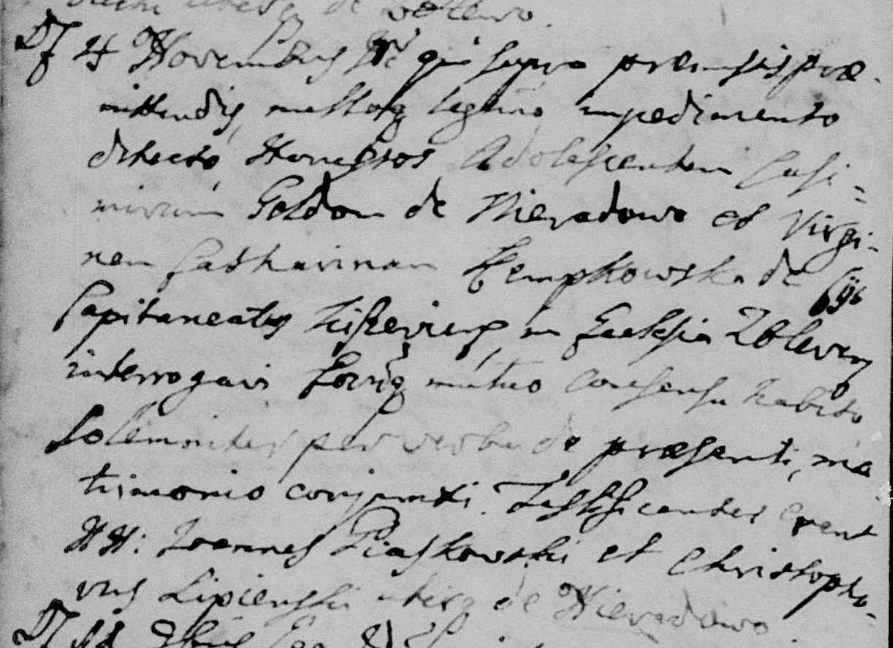 de
D 4 Novembris qui supra præmissis præ-
mittendis, nulloq legitimo impedimento
detecto, Honestos Adolescentem Casi=
mirum Goldon de Nieradowo et Virgi-
nem Catharinam Kempkowska de
Capitaneatus in Ecclesia Zbleven
interrogavi eorūq mutuo consensu habito
solemniter per verba de præsenti, ma
trimonio conjunxi. Testificantes erant
HH: Joannes Piaskowski et Christopho-
rus Lipienski uterq de Nieradowo.
D